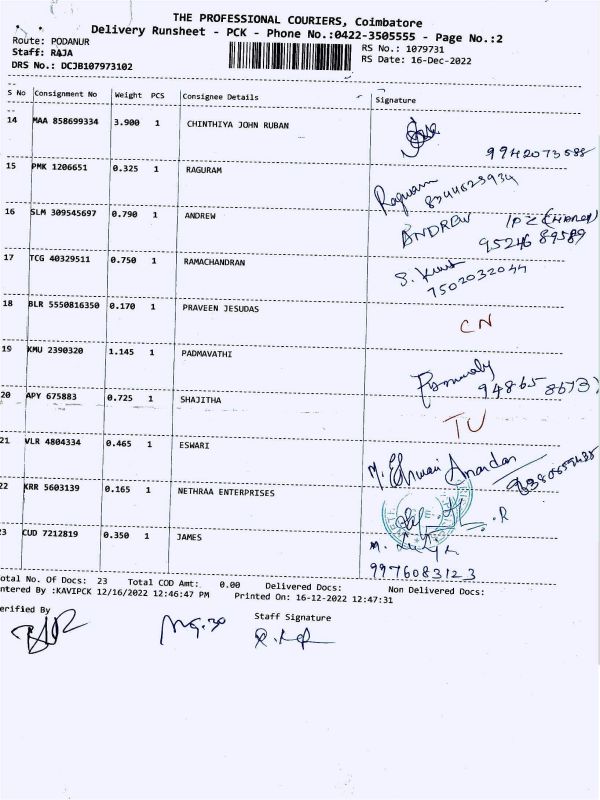 THE PROFESSIONAL COURIERS, Coimbatore
Delivery Runsheet - PCK - Phone No.:0422-3505555 - Page No.:2
Route: PODANUR
RS No.: 1079731
Staff: RAJA
RS Date: 16-Dec-2022
DRS No.: DCJB107973102
S No Consignment No Weight PCS Consignee Details Signature
14 MAA 858699334 3.900 1 CHINTHIYA JOHN RUBAN
9942073588
15 PMK 1206651 0.325 1 RAGURAM
Raguram
16 SLM 309545697 0.790 1 ANDREW ANDREW
95246 89589
17 TCG 40329511 0.750 1 RAMACHANDRAN
7502032044
18 BLR 5550816350 0.170 1 PRAVEEN JESUDAS
CN
19 KMU 2390320 1.145 1 PADMAVATHI
20 APY 675883 0.725 1 SHAJITHA
TU
21 VLR 4804334 0.465 1 ESWARI
22 KRR 5603139 0.165 1 NETHRAA ENTERPRISES
23 CUD 7212819 0.350 1 JAMES
9976083123
otal No. Of Docs: 23 Total COD Amt: 0.00 Delivered Docs: Non Delivered Docs:
ntered By :KAVIPCK 12/16/2022 12:46:47 PM Printed On: 16-12-2022 12:47:31
erified By Staff Signature